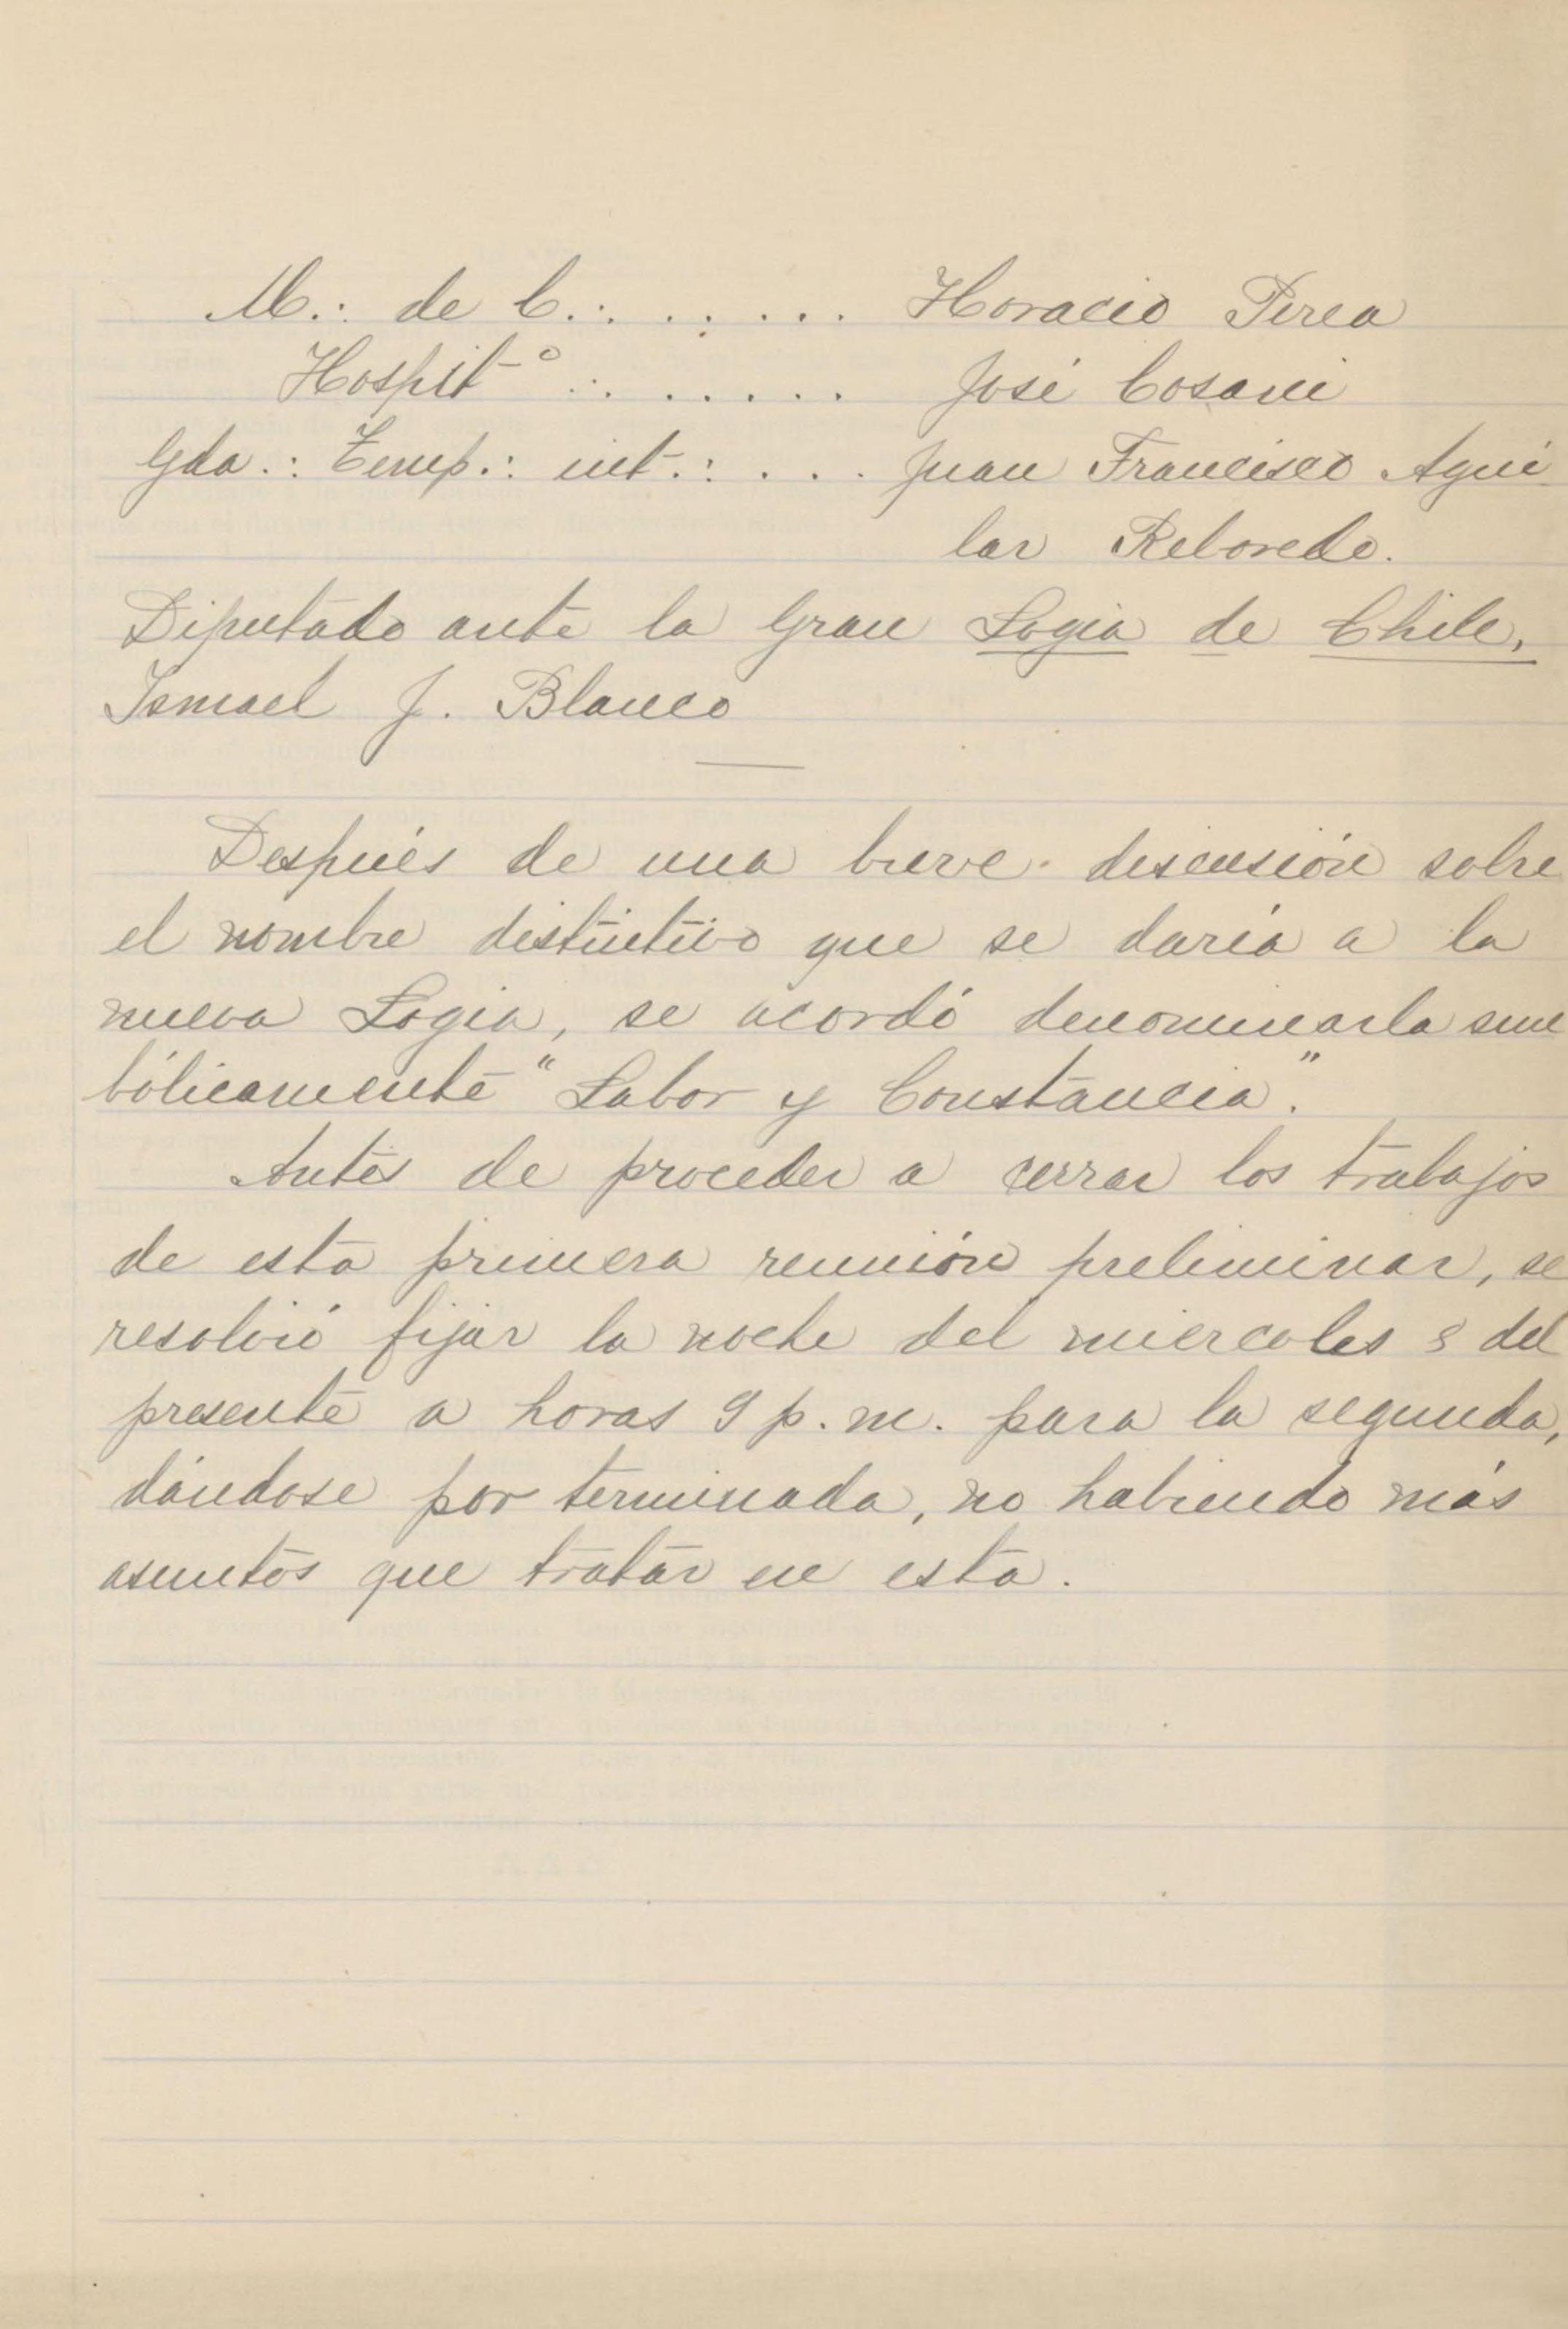 M.: de C.: . . . . . Horacio Perea
Hospit° .: . . . . . José Cosani
Gda.: Temp.: int.: . . . Juan Francisco Agui
lar Reboredo.
Diputado ante la Gran Logia de Chile,
Ismael J. Blanco
Después de una breve discusión sobre
el nombre distintivo que se daría a la
nueva Logia, se acordó denominarla sim
bólicamente "Labor y Constancia".
Antes de proceder a cerrar los trabajos
de esta primera reunión preliminar, se
resolvió fijar la noche del miercoles 8 del
presente a horas 9 p.m. para la segunda,
dándose por terminada, no habiendo más
asuntos que tratar en esta.